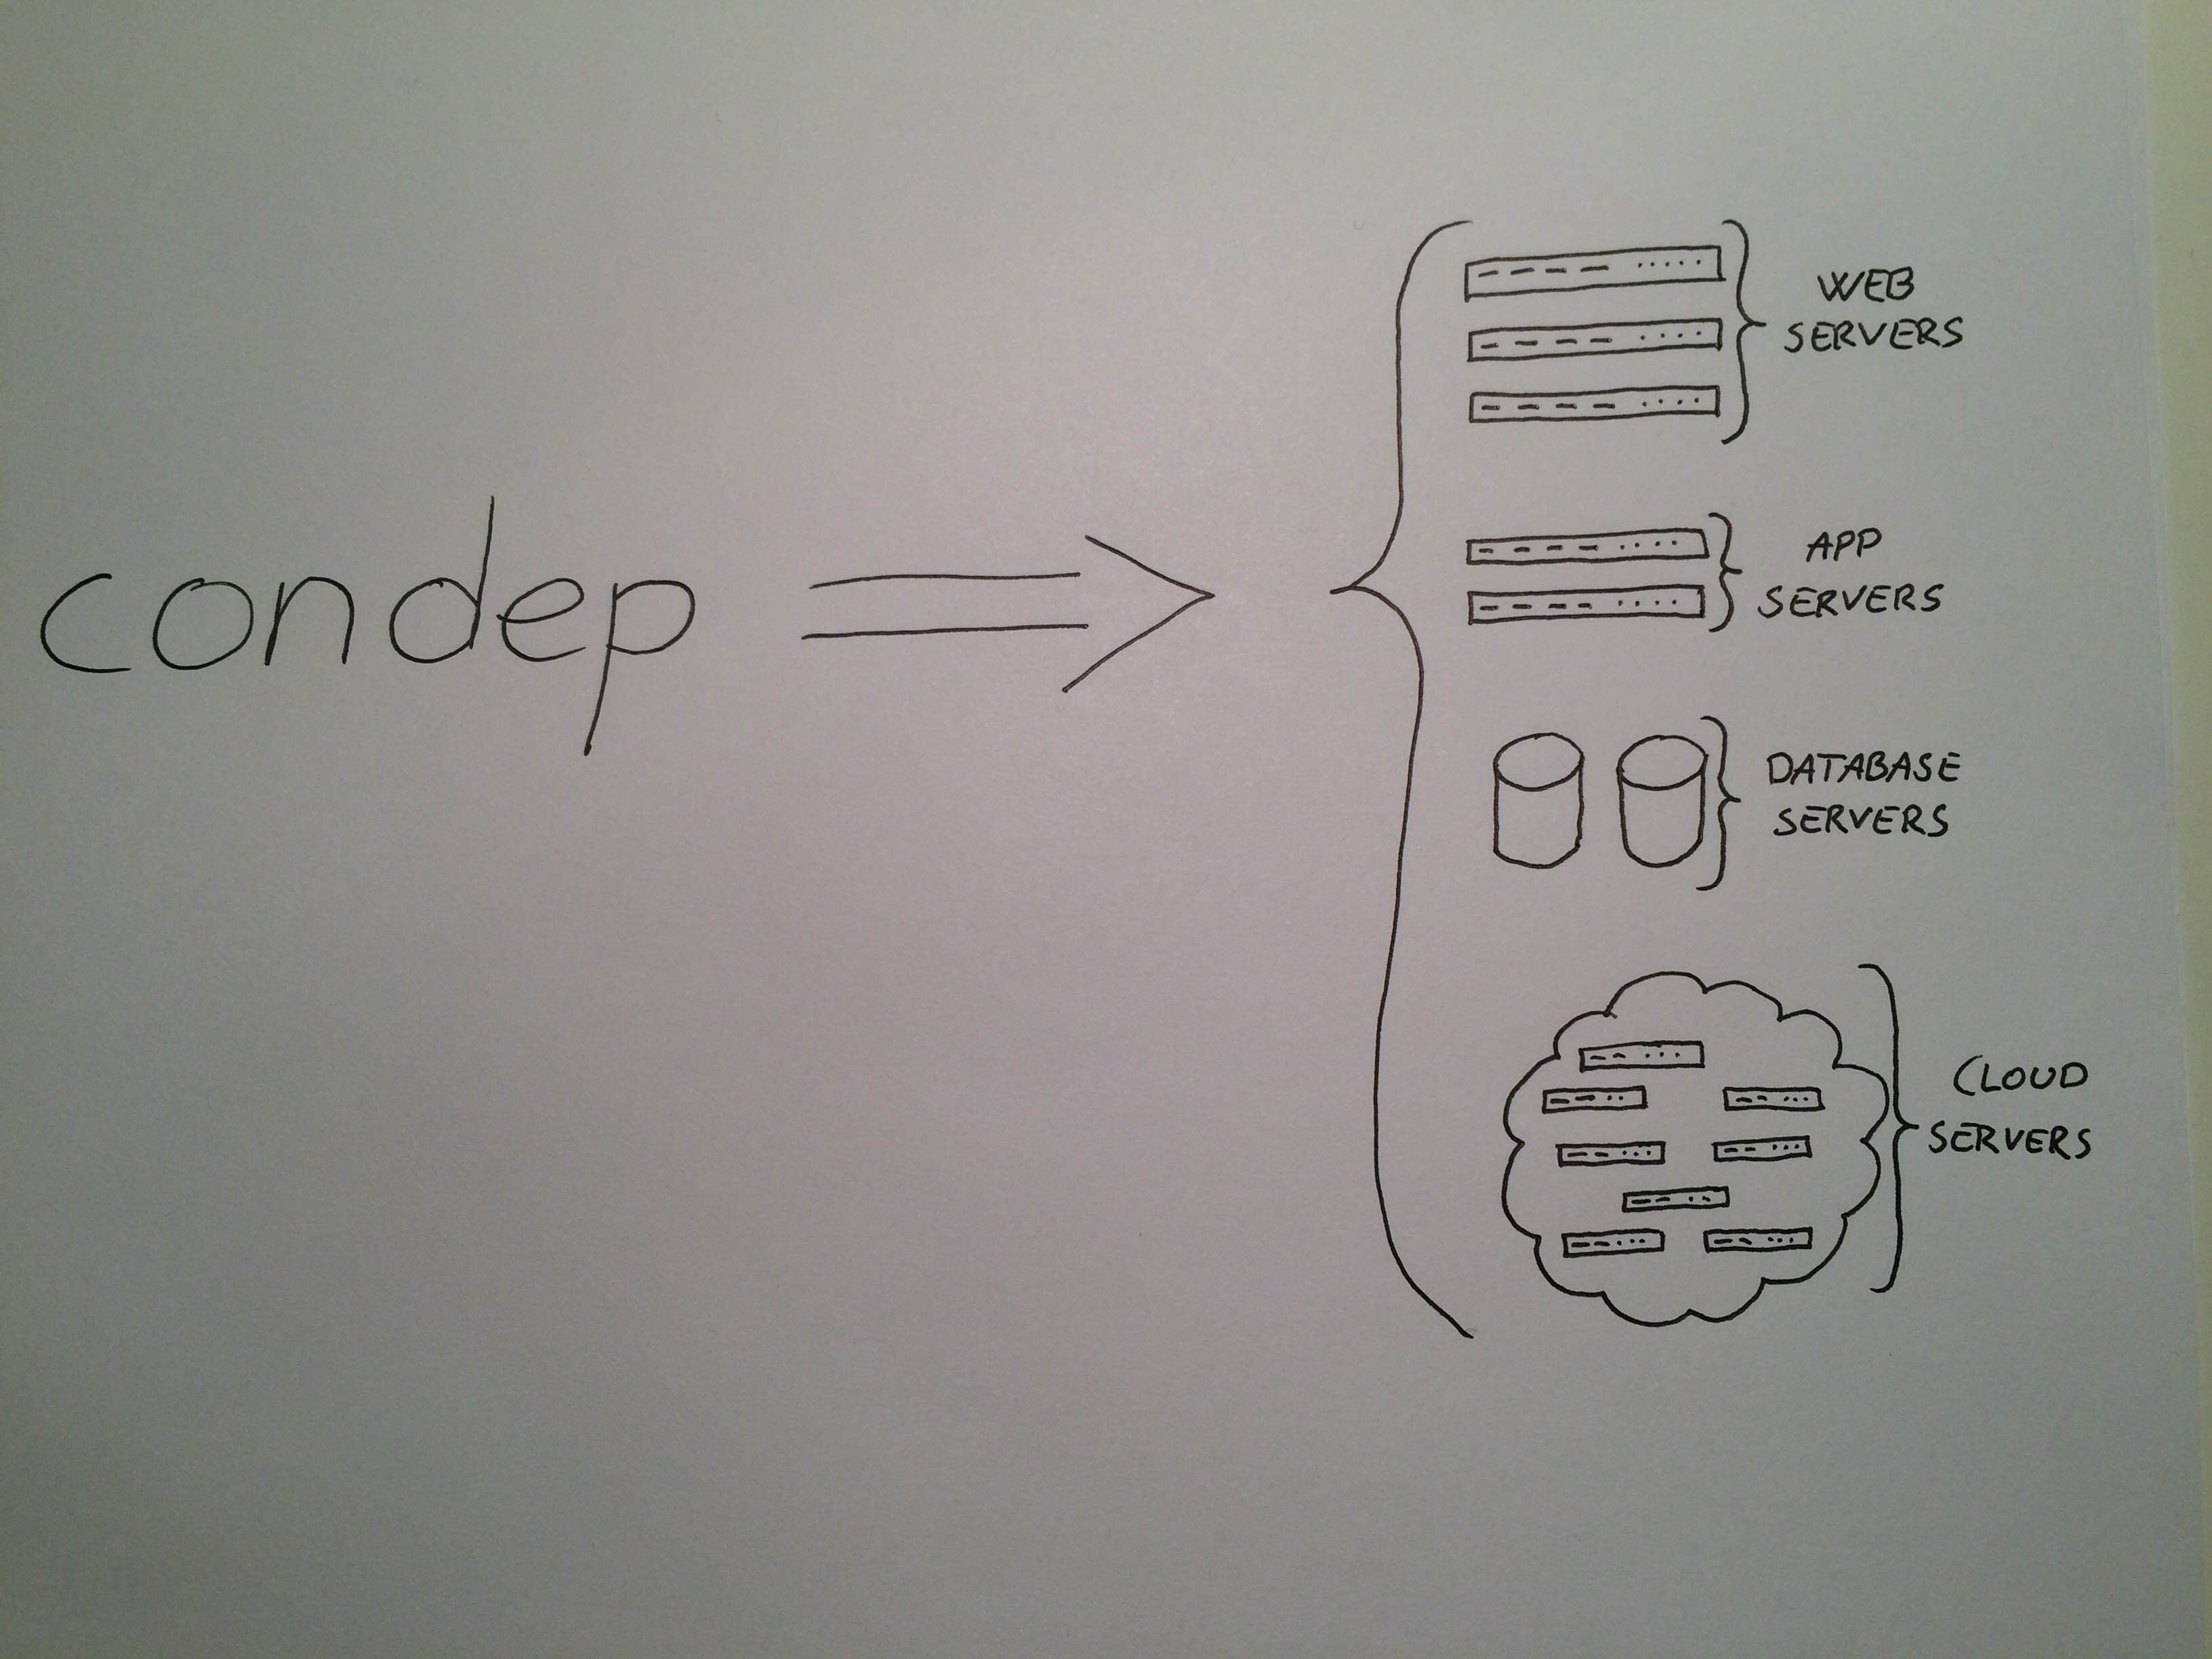 condep
WEB
SERVERS
APP
SERVERS
DATABASE
SERVERS
CLOUD
SERVERS